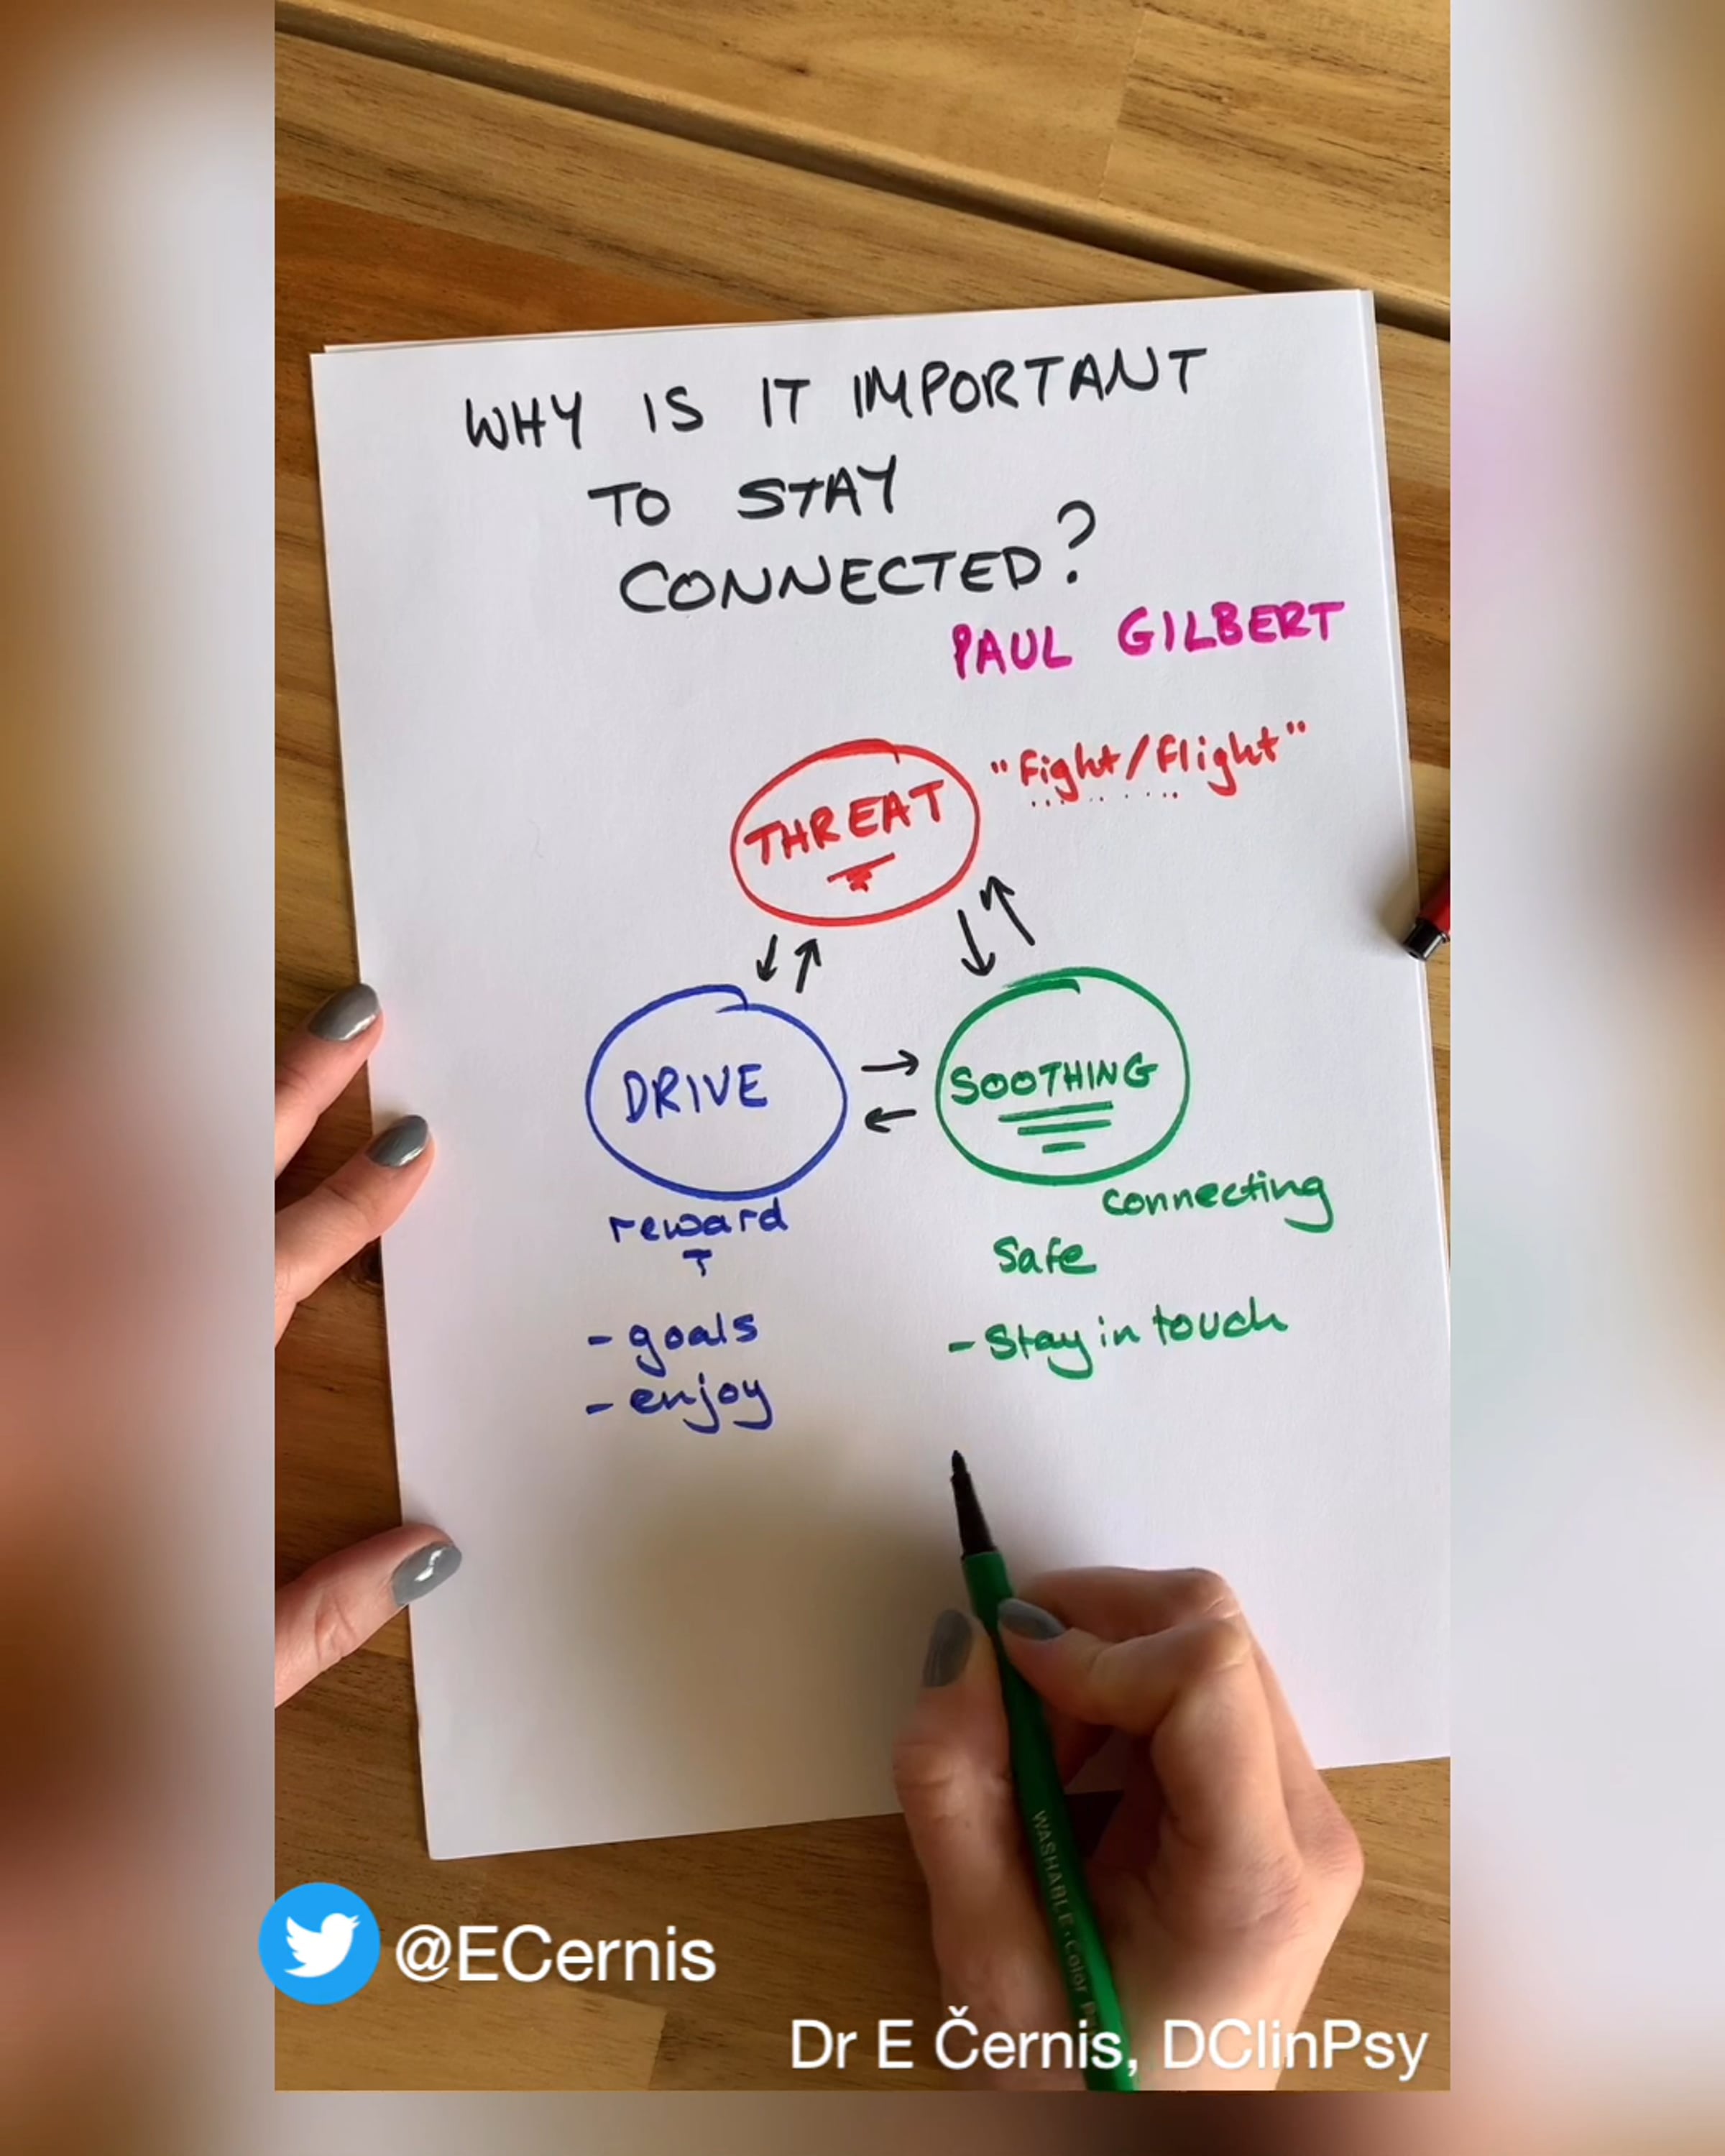 WHY IS IT IMPORTANT
TO STAY
CONNECTED?
PAUL GILBERT
THREAT
"Fight/Flight"
DRIVE
SOOTHING
reward
connecting
Safe
- goals
- Stay in touch
- enjoy
WASHABLE
@ECernis
Dr E Černis, DClinPsy